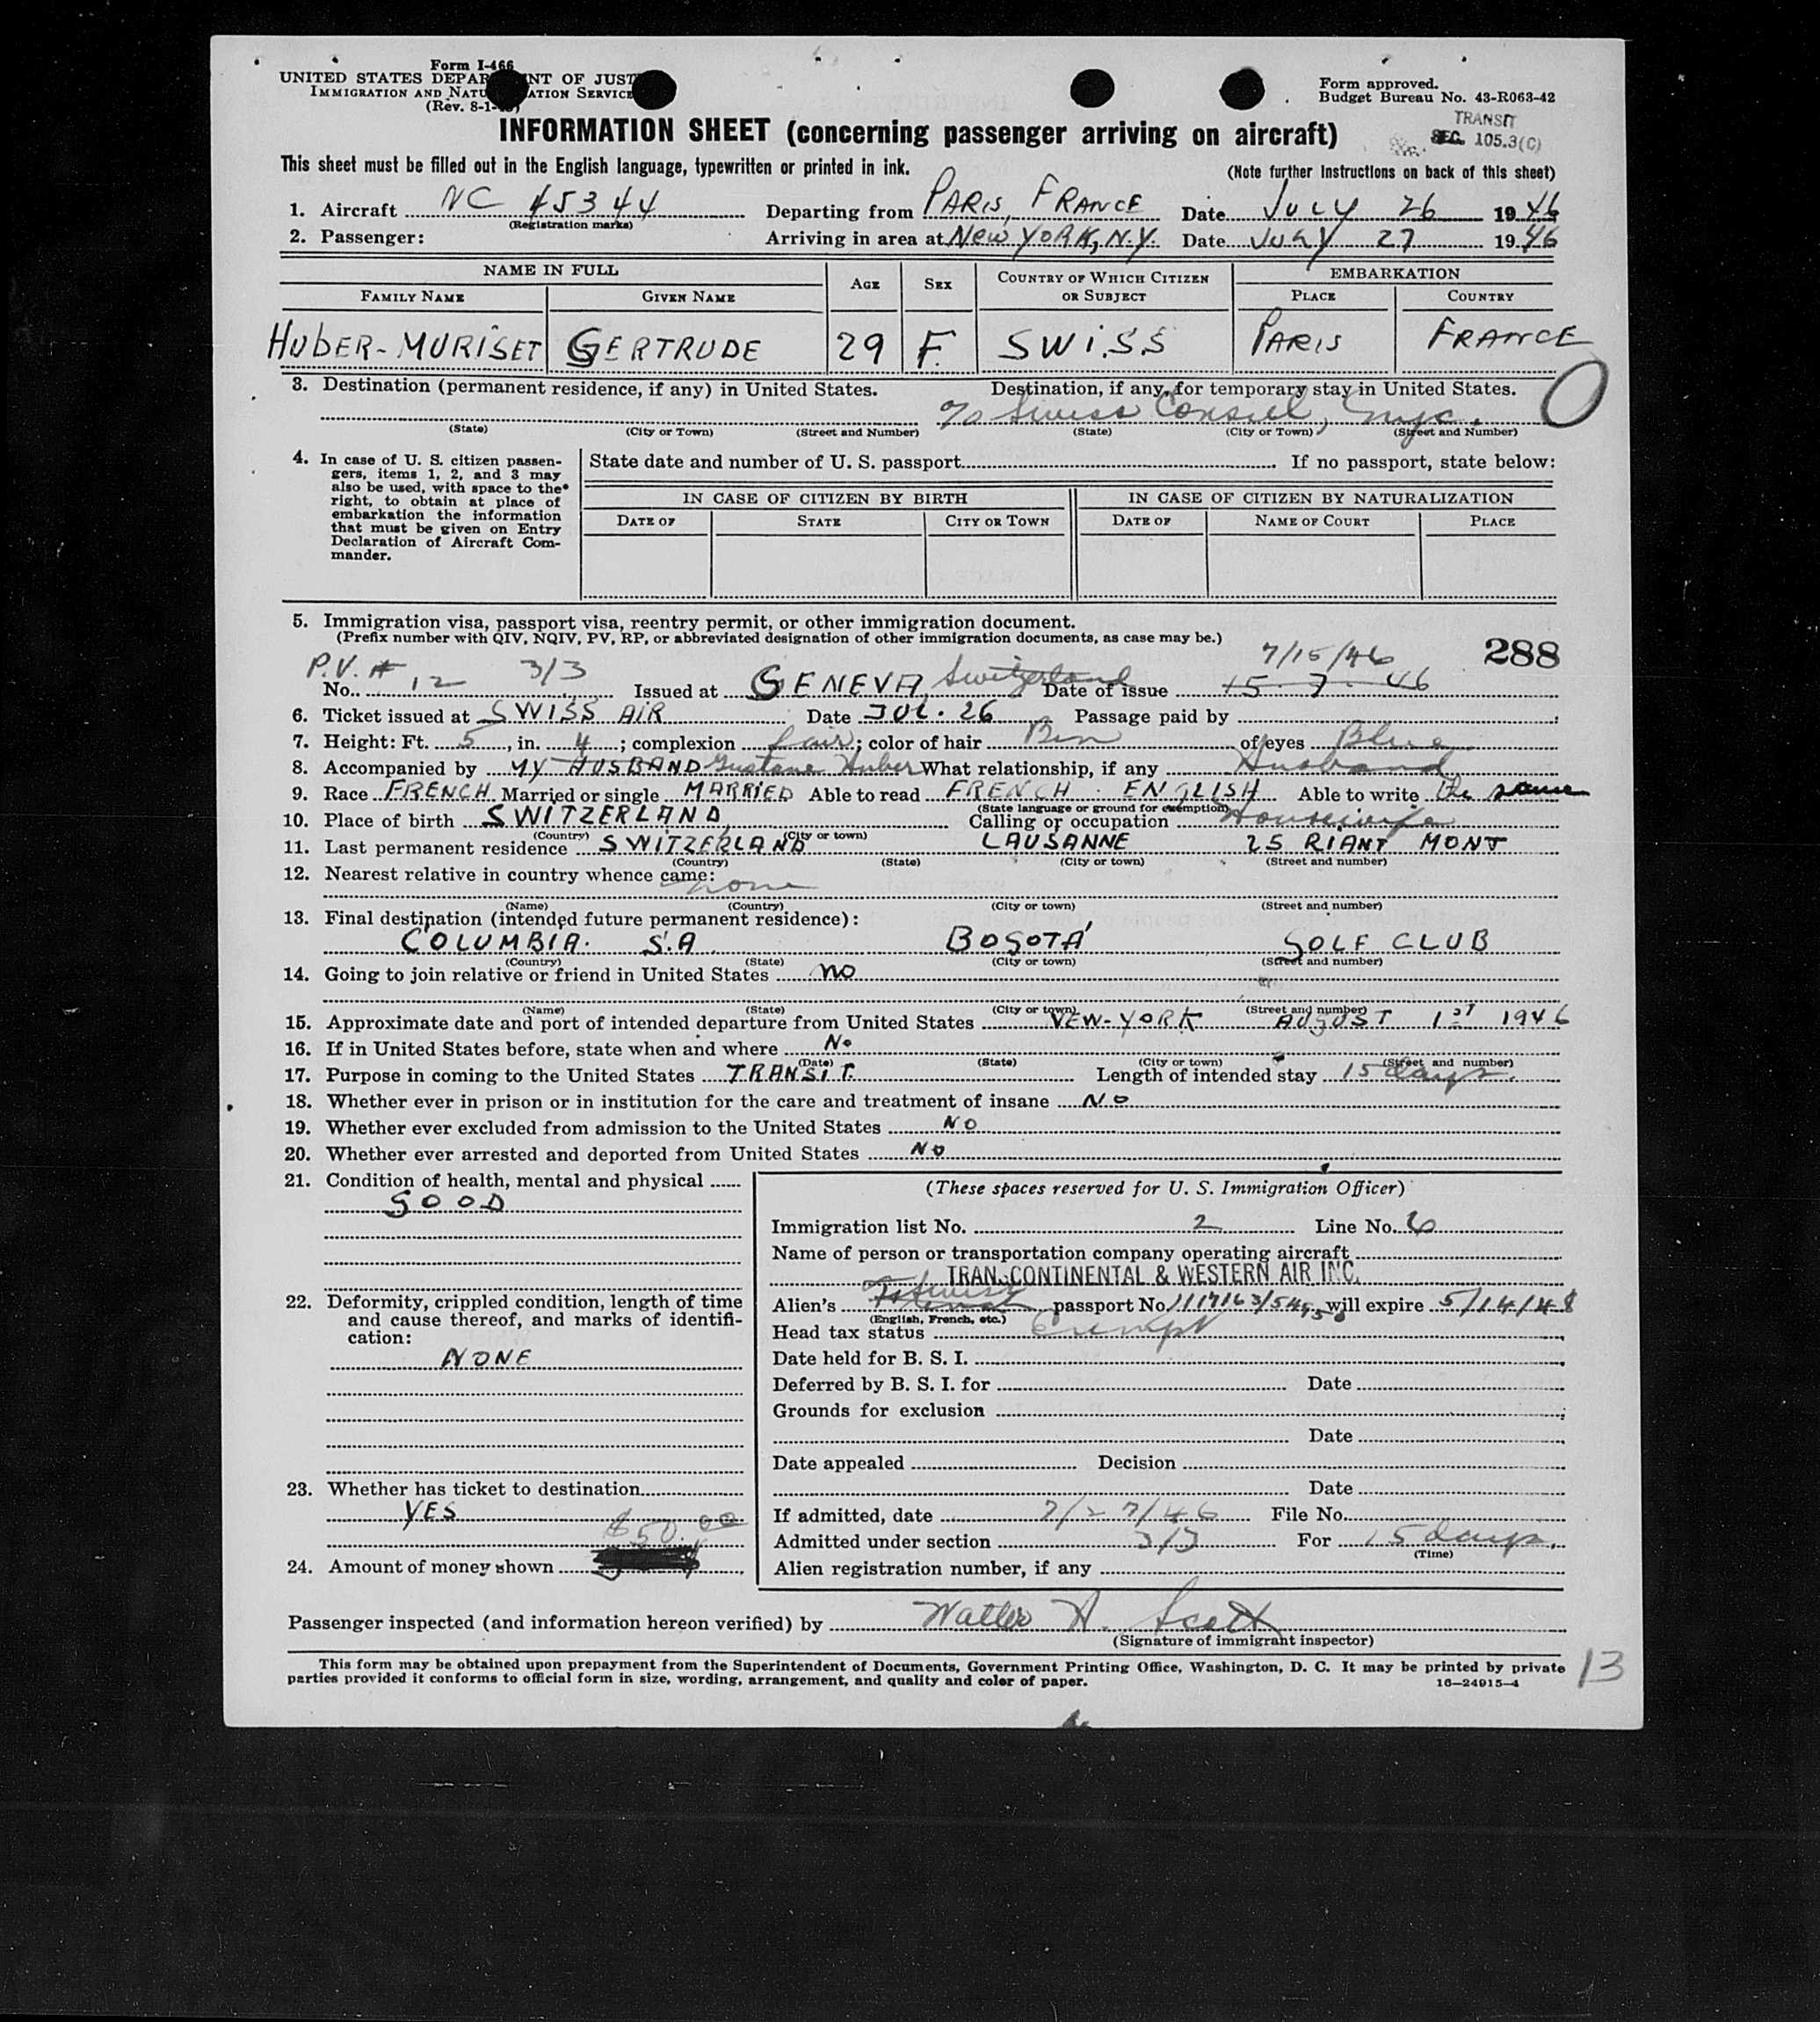 Form I-466
UNITED STATES DEPAR NT OF JUST
IMMIGRATION AND NATU ATION SERVICE
(Rev. 8-1-
Form approved.
Budget Bureau No. 43-R063-42
TRANSIT
SEC. 105.3(C)
INFORMATION SHEET (concerning passenger arriving on aircraft)
This sheet must be filled out in the English language, typewritten or printed in ink.
(Note further instructions on back of this sheet)
1. Aircraft NC 45344 Departing from PARIS, FRANCE Date JULY 26 1946
(Registration marks)
2. Passenger: Arriving in area at NEW YORK, N.Y. Date JULY 27 1946
NAME IN FULL AGE SEX COUNTRY OF WHICH CITIZEN OR SUBJECT EMBARKATION
FAMILY NAME GIVEN NAME PLACE COUNTRY
HUBER-MURISET GERTRUDE 29 F. SWISS PARIS FRANCE
3. Destination (permanent residence, if any) in United States. Destination, if any, for temporary stay in United States.
% Swiss Consul, nyc. O
(State) (City or Town) (Street and Number) (State) (City or Town) (Street and Number)
4. In case of U. S. citizen passen-
gers, items 1, 2, and 3 may
also be used, with space to the
right, to obtain at place of
embarkation the information
that must be given on Entry
Declaration of Aircraft Com-
mander.
State date and number of U. S. passport If no passport, state below:
IN CASE OF CITIZEN BY BIRTH IN CASE OF CITIZEN BY NATURALIZATION
DATE OF STATE CITY OR TOWN DATE OF NAME OF COURT PLACE
5. Immigration visa, passport visa, reentry permit, or other immigration document.
(Prefix number with QIV, NQIV, PV, RP, or abbreviated designation of other immigration documents, as case may be.)
288
P.V. # 3/3 7/15/46
No. 12 Issued at GENEVA, Switzerland Date of issue 15.7.46
6. Ticket issued at SWISS AIR Date JUL. 26 Passage paid by
7. Height: Ft. 5, in. 4; complexion fair; color of hair Brn of eyes Blue
8. Accompanied by MY HUSBAND Gustave Huber What relationship, if any Husband
9. Race FRENCH Married or single MARRIED Able to read FRENCH. ENGLISH Able to write the same
(State language or ground for exemption)
10. Place of birth SWITZERLAND Calling or occupation Housewife
(Country) (City or town)
11. Last permanent residence SWITZERLAND LAUSANNE 25 RIANT MONT
(Country) (State) (City or town) (Street and number)
12. Nearest relative in country whence came:
none
(Name) (Country) (City or town) (Street and number)
13. Final destination (intended future permanent residence):
COLUMBIA. S.A. BOGOTÁ GOLF CLUB
(Country) (State) (City or town) (Street and number)
14. Going to join relative or friend in United States NO
(Name) (State) (City or town) (Street and number)
15. Approximate date and port of intended departure from United States NEW-YORK AUGUST 1ST 1946
16. If in United States before, state when and where No
(Date) (State) (City or town) (Street and number)
17. Purpose in coming to the United States TRANSIT. Length of intended stay 15 days.
18. Whether ever in prison or in institution for the care and treatment of insane NO
19. Whether ever excluded from admission to the United States NO
20. Whether ever arrested and deported from United States NO
21. Condition of health, mental and physical
GOOD
22. Deformity, crippled condition, length of time
and cause thereof, and marks of identifi-
cation:
NONE
23. Whether has ticket to destination
YES
$50.00
24. Amount of money shown
(These spaces reserved for U. S. Immigration Officer)
Immigration list No. 2 Line No. 6
Name of person or transportation company operating aircraft
TRANS.CONTINENTAL & WESTERN AIR INC.
Alien's Swiss passport No. will expire 5/14/48
(English, French, etc.)
Head tax status Exempt
Date held for B. S. I.
Deferred by B. S. I. for Date
Grounds for exclusion
Date
Date appealed Decision
Date
If admitted, date 7/27/46 File No.
Admitted under section 3/3 For 15 days.
(Time)
Alien registration number, if any
Passenger inspected (and information hereon verified) by Walter A. Scott
(Signature of immigrant inspector)
This form may be obtained upon prepayment from the Superintendent of Documents, Government Printing Office, Washington, D. C. It may be printed by private
parties provided it conforms to official form in size, wording, arrangement, and quality and color of paper.
16—24915-4
13